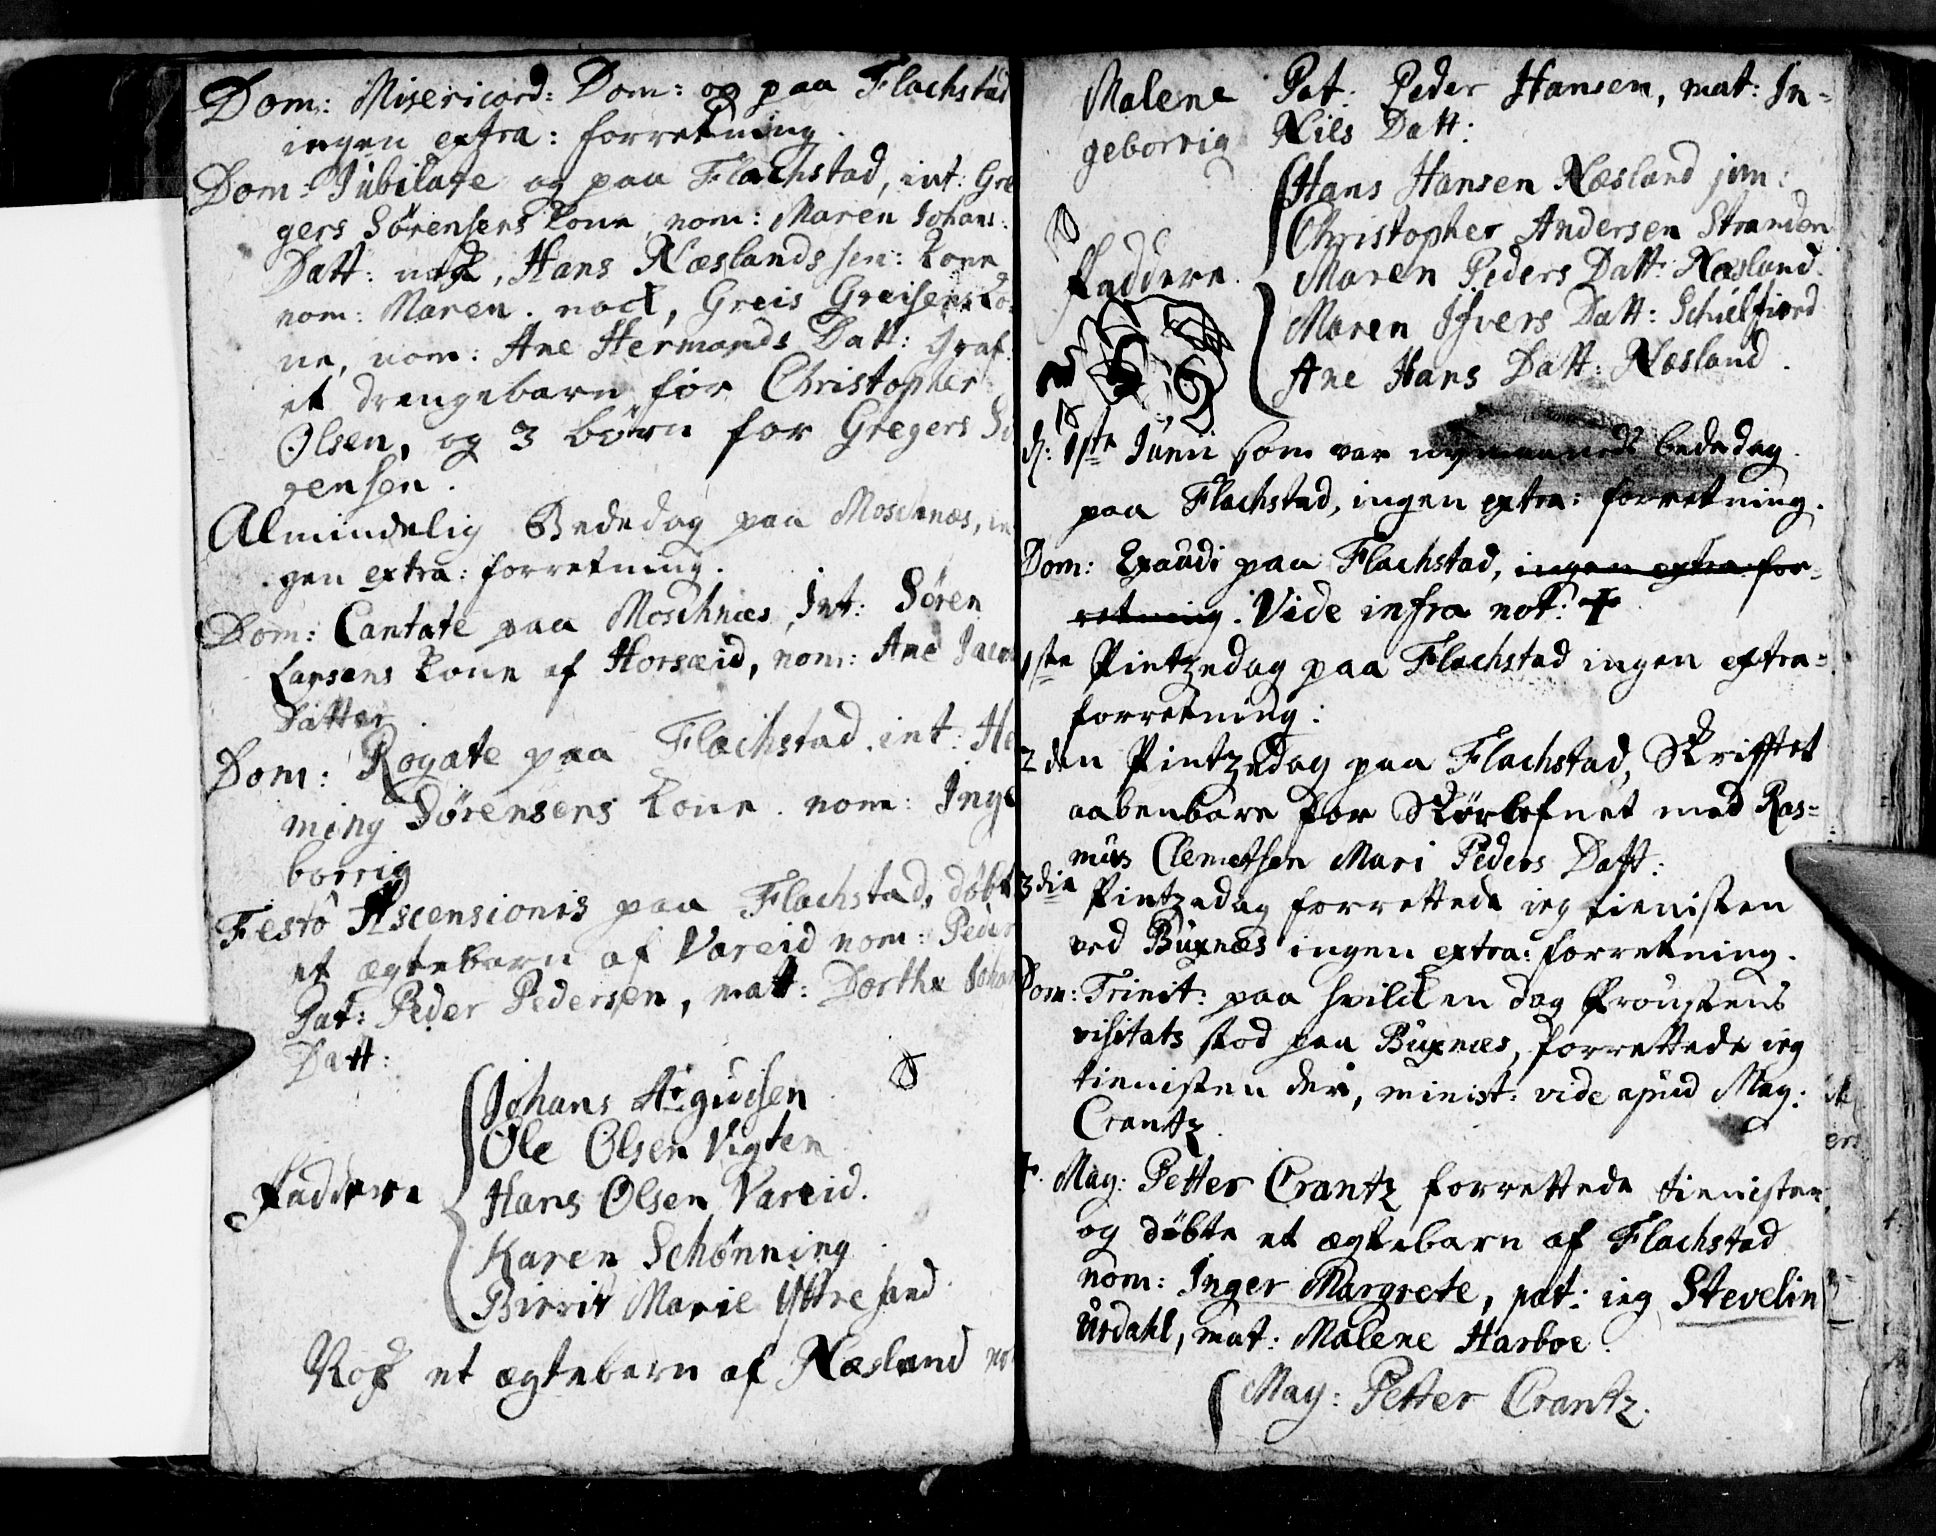 Dom: Misericord: Dom: og paa Flachstad
ingen extra: forretning.
Dom: Jubilate og paa Flachstad, int: Gre
gers Sørensens Kone, nom: Maren Johans:
Datt: nock, Hans Næslands sen: Kone
nom: Maren. nock, Greis Greisens Ko-
ne, nom: Ane Hermands Datt: Graf:
et drengebarn for Christopher
Olsen, og 3 børn for Gregers
gensen.
Almindelig Bededag paa Moschnæs, in
gen extra: forretning.
Dom: Cantate paa Moschnæs, Int: Sören
Larsens Kone af Horsæid, nom: Ane Jaco
Datter.
Dom: Rogate paa Flachstad. int: He
ming Sørensens Kone. nom: Inge
borrig
Festo Ascensionis paa Flachstad, døbt
et ægtebarn af Vareid nom: Peder
Pat: Peder Pedersen, mat: Dorthe Johan
Datt:
Johans Argudsen
Ole Olsen Vigten
Faddere
Hans Olsen Vareid.
Karen Schønning
Birrit Marie Yttresand
Nock et ægtebarn af Næsland no
Malene Pat: Peder Hansen, mat: In-
geborrig Nils Datt:
Hans Hansen Næsland jun:
Christopher Andersen Stranden
Faddere.
Maren Peders Datt: Næsland.
Maren Ifvers Datt: Schielfiord
Ane Hans Datt: Næsland.
d: 1ste Junii som var nymaaneds bededag
paa Flachstad, ingen extra: forretning.
Dom: Exaudi paa Flachstad, ingen extra for-
retning. Vide infra not: +
1ste Pintzedag paa Flachstad ingen extra-
forretning:
2den Pintzedag paa Flachstad, Skrifftet
aabenbare for Skørlefnet med Ras-
mus Clemetsen Mari Peders Datt:
3die Pintzedag forrettede ieg tienisten
ved Buxnæs ingen extra: forretning.
Dom: Trinit: paa hvilcken dag Proustens
visitats stod paa Buxnæs, forrettede ieg
tienisten der, minist: vide apud Mag:
Crantz.
+. Mag: Petter Crantz forrettede tienisten,
og døbte et ægtebarn af Flachstad
nom: Inger Margrete, pat: ieg Stevelin
Urdahl, mat: Malene Harboe.
Mag: Petter Crantz.